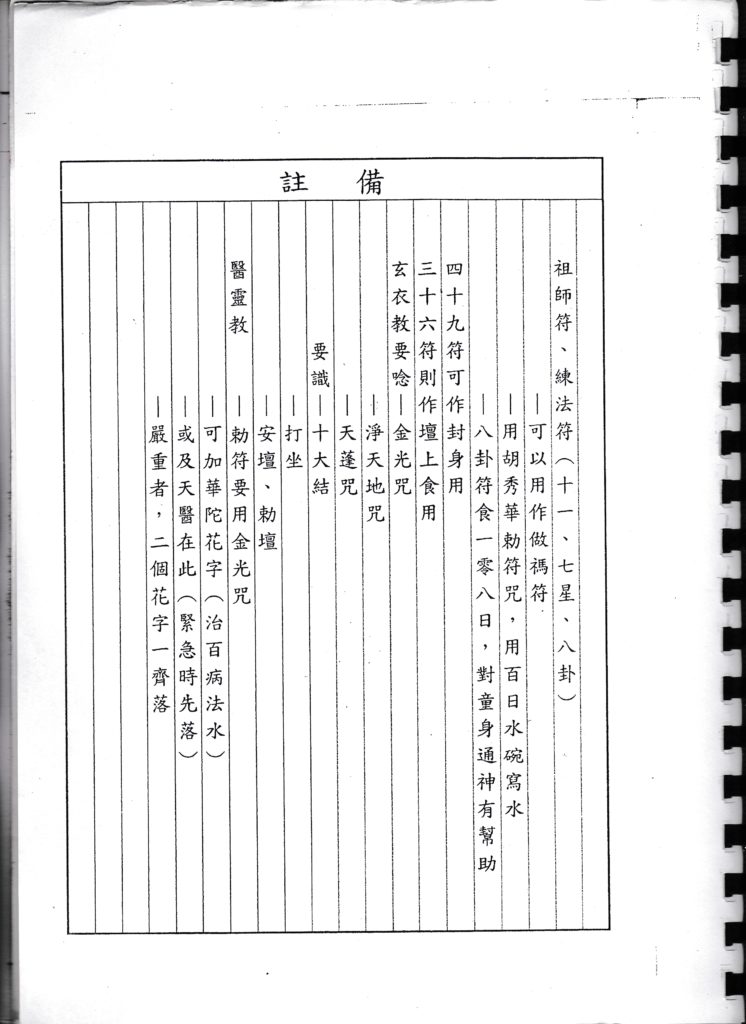 備註
祖師符、練法符（十一、七星、八卦）
—可以用作做禡符
—用胡秀華勅符咒，用百日水碗寫水
—八卦符食一零八日，對童身通神有幫助
四十九符可作封身用
三十六符則作壇上食用
玄衣教要唸—金光咒
—淨天地咒
—天蓬咒
要識—十大結
—打坐
—安壇、勅壇
醫靈教—勅符要用金光咒
—可加華陀花字（治百病法水）
—或及天醫在此（緊急時先落）
—嚴重者，二個花字一齊落